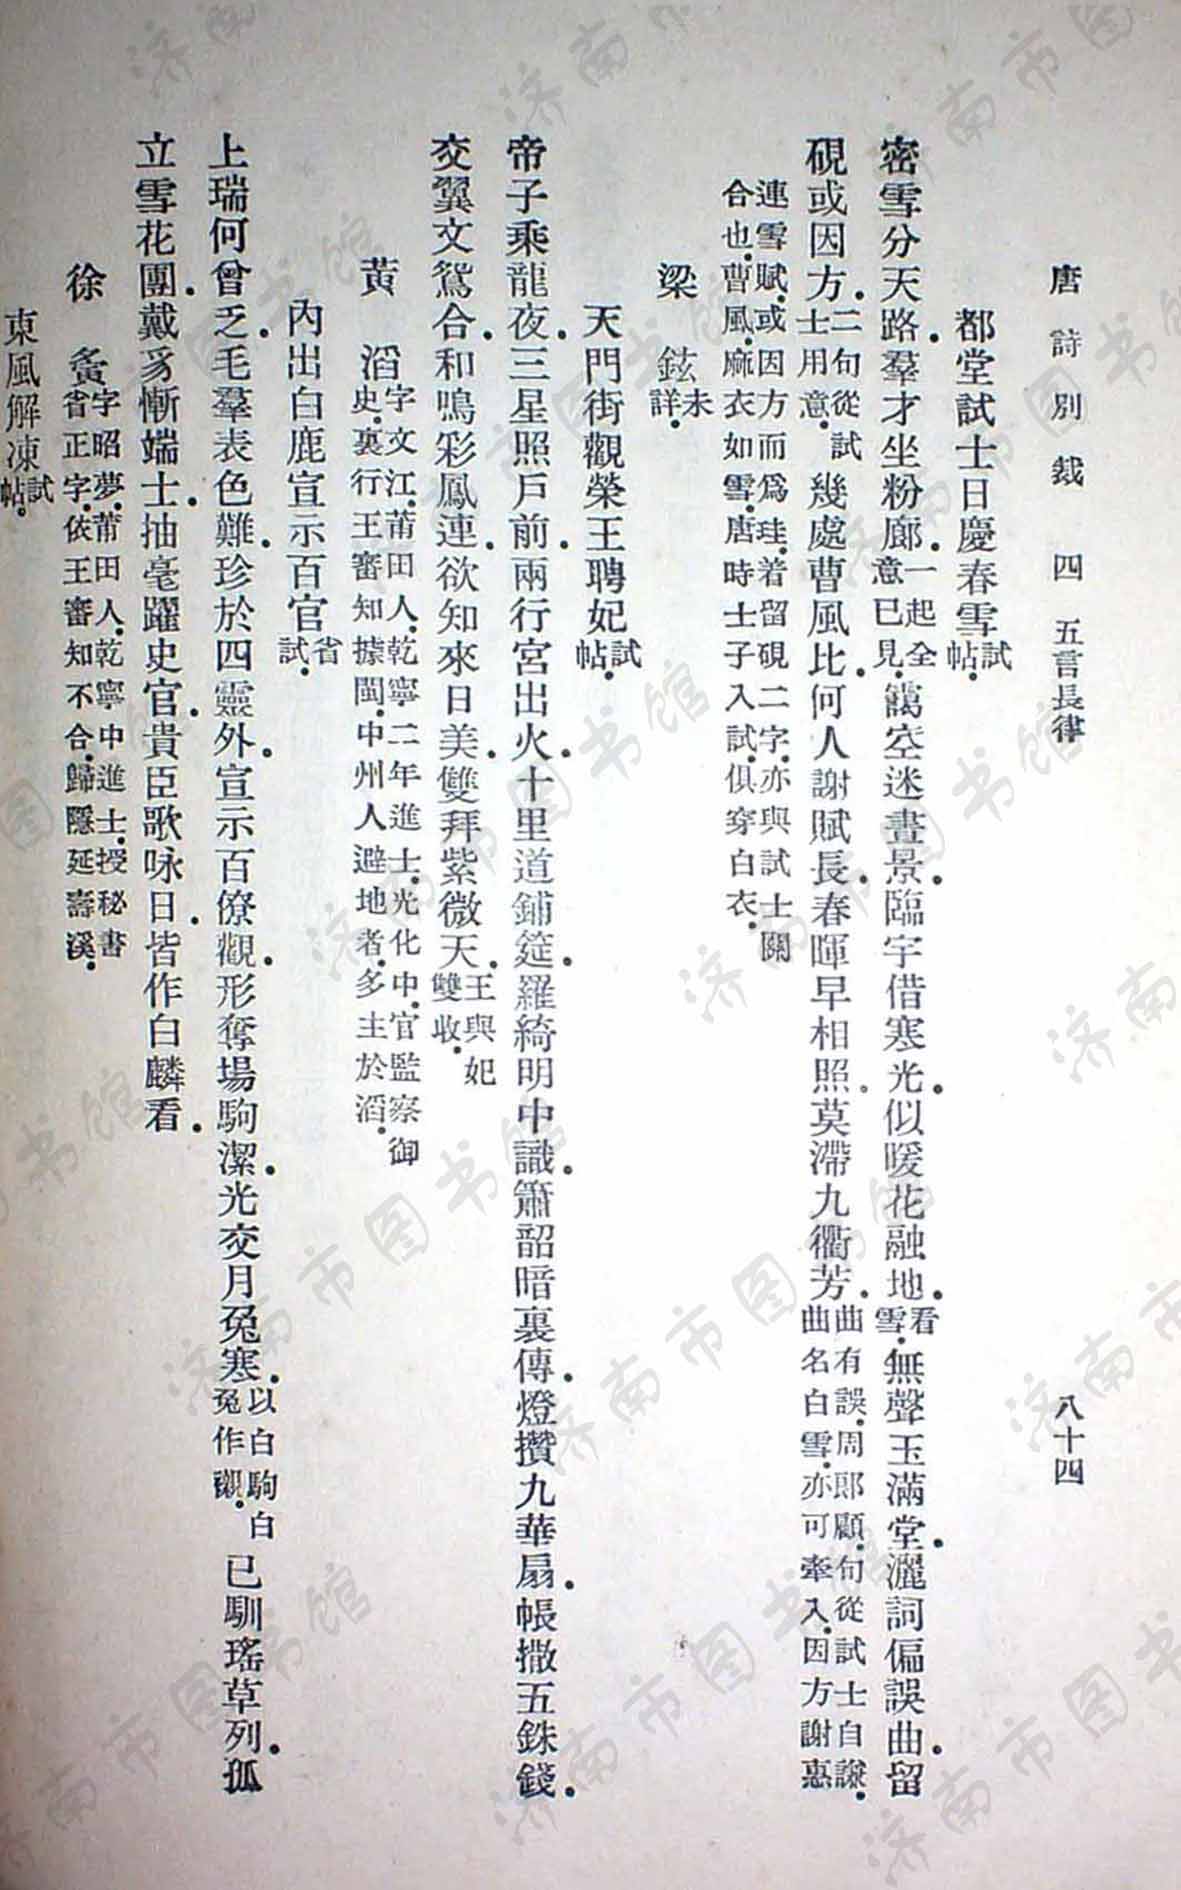 唐詩別裁 四 五言長律 八十四
都堂試士日慶春雪試帖.
密雪分天路.羣才坐粉廊.一起全意已見.靄空迷晝景.臨宇借寒光.似暖花融地.看雪.無聲玉滿堂.灑詞偏誤曲.留
硯或因方.二句從試士用意.幾處曹風比.何人謝賦長.春暉早相照.莫滯九衢芳.曲有誤.周郎顧.句從試士自謙.曲名白雪.亦可牽入.因方謝惠
連雪賦.或因方而爲珪.着留硯二字.亦與試士關合也.曹風.麻衣如雪.唐時士子入試.俱穿白衣.
梁鉉未詳.
天門街觀榮王聘妃試帖.
帝子乘龍夜.三星照戶前.兩行宮出火.十里道鋪筵.羅綺明中識.簫韶暗裏傳.燈攢九華扇.帳撒五銖錢.
交翼文鴛合.和鳴彩鳳連.欲知來日美.雙拜紫微天.王與妃雙收.
黃滔字文江.莆田人.乾寧二年進士.光化中.官監察御史.裏行王審知據閩.中州人避地者.多主於滔.
內出白鹿宣示百官省試.
上瑞何曾乏.毛羣表色難.珍於四靈外.宣示百僚觀.形奪場駒潔.光交月兔寒.以白駒白兔作襯.已馴瑤草列.孤
立雪花團.戴豸慚端士.抽毫躍史官.貴臣歌咏日.皆作白麟看.
徐夤字昭夢.莆田人.乾寧中進士.授秘書省正字.依王審知不合.歸隱延壽溪.
東風解凍試帖.
济南市图书馆